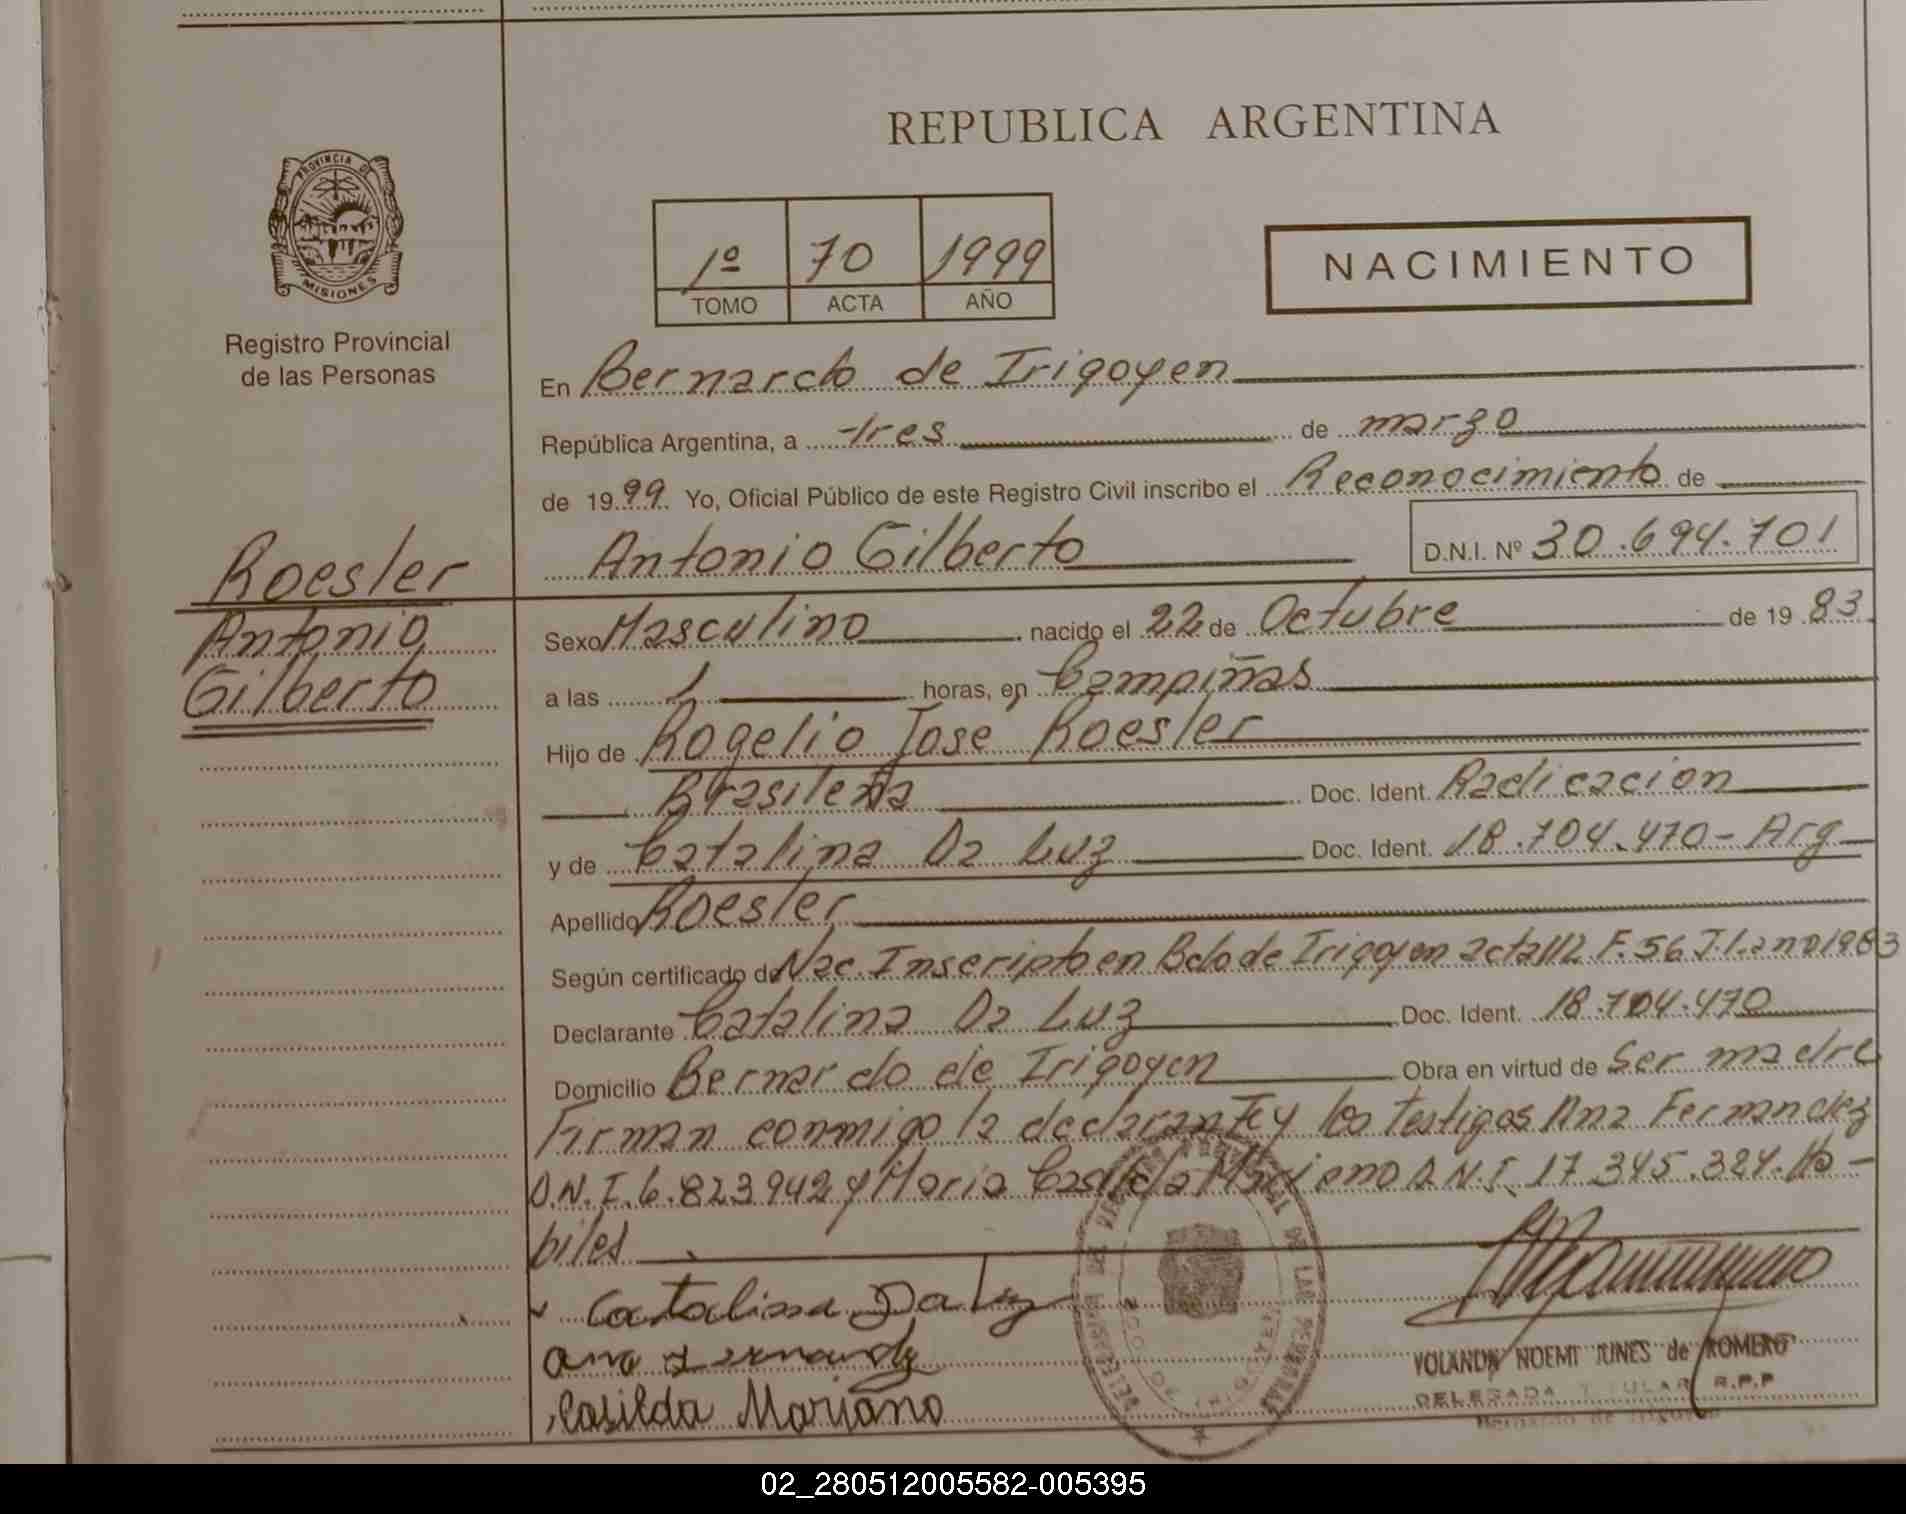 REPUBLICA ARGENTINA
PROVINCIA DE
MISIONES
Registro Provincial
de las Personas
1º 70 1999
TOMO ACTA AÑO
NACIMIENTO
En Bernardo de Irigoyen
República Argentina, a tres de marzo
de 1999 Yo, Oficial Público de este Registro Civil inscribo el Reconocimiento de
Antonio Gilberto D.N.I. Nº 30.694.701
Roesler
Antonio
Gilberto
Sexo Masculino nacido el 22 de Octubre de 1983
a las horas, en Campiñas
Hijo de Rogelio Jose Roesler
Brasileña Doc. Ident. Radicacion
y de Catalina Da Luz Doc. Ident. 18.704.470 - Arg
Apellido Roesler
Según certificado de Nac. Inscripto en Bdo de Irigoyen acta 112 F. 56 T.1. ano 1983
Declarante Catalina Da Luz Doc. Ident. 18.704.470
Domicilio Bernardo de Irigoyen Obra en virtud de Ser madre
Firman conmigo la declarante y los testigos Ana Fernandez
D.N.I. 6.823942 y Maria Casilda Mariano D.N.I. 17.345.324. Há-
biles
Catalina Da Luz
Ana Fernandez
Casilda Mariano
YOLANDA NOEMI JUNES de ROMERO
DELEGADA TITULAR R.P.P
Bernardo de Irigoyen
02_280512005582-005395